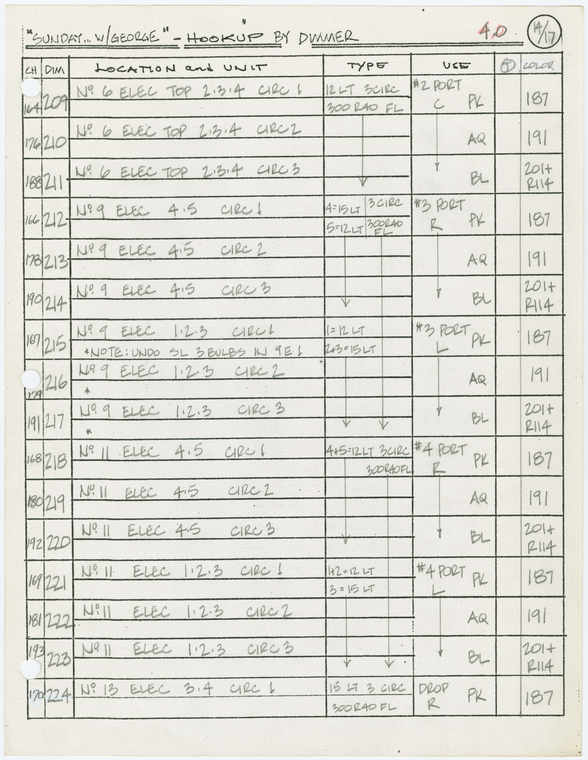 "SUNDAY... W/GEORGE" - HOOKUP BY DIMMER 4.0 14/17
CH DIM LOCATION and UNIT TYPE USE COLOR
164 209 Nº 6 ELEC TOP 2·3·4 CIRC 1 12 LT 3 CIRC #2 PORT PK 187
300 R40 FL C
176 210 Nº 6 ELEC TOP 2·3·4 CIRC 2 AQ 191
188 211 Nº 6 ELEC TOP 2·3·4 CIRC 3 BL 201+
R114
166 212 Nº 9 ELEC 4·5 CIRC 1 4=15 LT 3 CIRC #3 PORT PK 187
5=12 LT 300R40 FL R
178 213 Nº 9 ELEC 4·5 CIRC 2 AQ 191
190 214 Nº 9 ELEC 4·5 CIRC 3 BL 201+
R114
167 215 Nº 9 ELEC 1·2·3 CIRC 1 1=12 LT #3 PORT PK 187
*NOTE: UNDO SL 3 BULBS IN 9E1 2+3=15 LT L
179 216 Nº 9 ELEC 1·2·3 CIRC 2 AQ 191
*
191 217 Nº 9 ELEC 1·2·3 CIRC 3 BL 201+
* R114
168 218 Nº 11 ELEC 4·5 CIRC 1 4+5=12 LT 3 CIRC #4 PORT PK 187
300R40 FL R
180 219 Nº 11 ELEC 4·5 CIRC 2 AQ 191
192 220 Nº 11 ELEC 4·5 CIRC 3 BL 201+
R114
169 221 Nº 11 ELEC 1·2·3 CIRC 1 1+2=12 LT #4 PORT PK 187
3=15 LT L
181 222 Nº 11 ELEC 1·2·3 CIRC 2 AQ 191
193 223 Nº 11 ELEC 1·2·3 CIRC 3 BL 201+
R114
170 224 Nº 13 ELEC 3·4 CIRC 1 15 LT 3 CIRC DROP PK 187
300R40 FL R